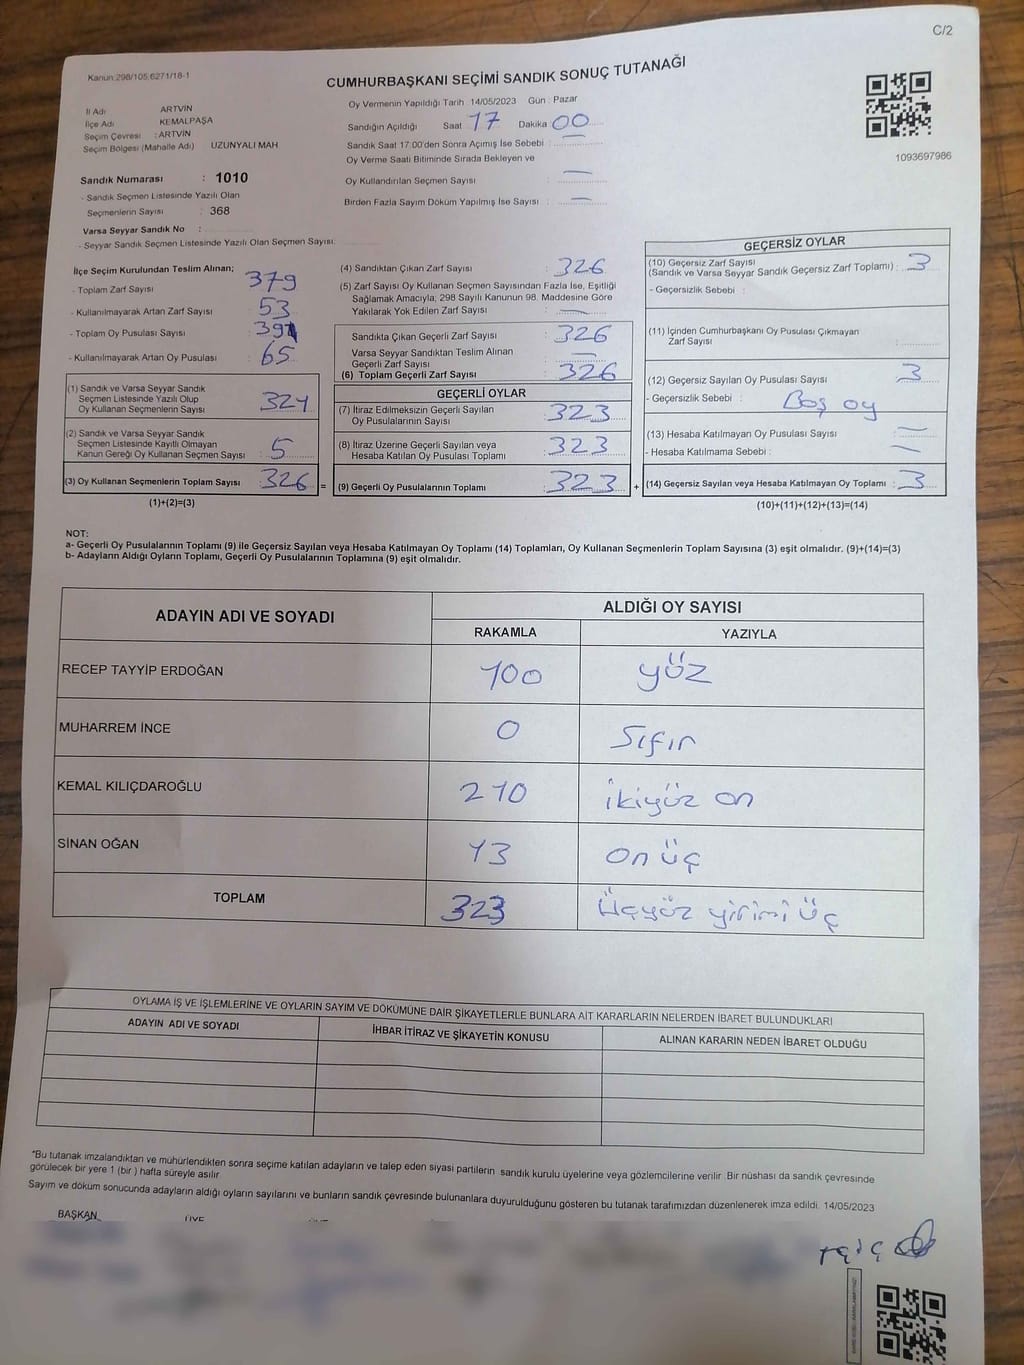 C/2
Kanun:298/105;6271/18-1
CUMHURBAŞKANI SEÇİMİ SANDIK SONUÇ TUTANAĞI
İl Adı ARTVİN
İlçe Adı KEMALPAŞA
Seçim Çevresi : ARTVİN
Seçim Bölgesi (Mahalle Adı) UZUNYALI MAH
Oy Vermenin Yapıldığı Tarih 14/05/2023 Gün : Pazar
Sandığın Açıldığı Saat 17 Dakika 00
Sandık Saat 17.00'den Sonra Açımış İse Sebebi :
Oy Verme Saati Bitiminde Sırada Bekleyen ve
Oy Kullandırılan Seçmen Sayısı : —
Birden Fazla Sayım Döküm Yapılmış İse Sayısı : —
1093697986
Sandık Numarası : 1010
- Sandık Seçmen Listesinde Yazılı Olan
Seçmenlerin Sayısı : 368
Varsa Seyyar Sandık No :
- Seyyar Sandık Seçmen Listesinde Yazılı Olan Seçmen Sayısı:
İlçe Seçim Kurulundan Teslim Alınan;
- Toplam Zarf Sayısı : 379
- Kullanılmayarak Artan Zarf Sayısı : 53
- Toplam Oy Pusulası Sayısı : 391
- Kullanılmayarak Artan Oy Pusulası : 65
(1) Sandık ve Varsa Seyyar Sandık
Seçmen Listesinde Yazılı Olup
Oy Kullanan Seçmenlerin Sayısı : 321
(2) Sandık ve Varsa Seyyar Sandık
Seçmen Listesinde Kayıtlı Olmayan
Kanun Gereği Oy Kullanan Seçmen Sayısı : 5
(3) Oy Kullanan Seçmenlerin Toplam Sayısı : 326 =
(1)+(2)=(3)
(4) Sandıktan Çıkan Zarf Sayısı : 326
(5) Zarf Sayısı Oy Kullanan Seçmen Sayısından Fazla İse, Eşitliği
Sağlamak Amacıyla; 298 Sayılı Kanunun 98. Maddesine Göre
Yakılarak Yok Edilen Zarf Sayısı : —
Sandıkta Çıkan Geçerli Zarf Sayısı : 326
Varsa Seyyar Sandıktan Teslim Alınan
Geçerli Zarf Sayısı : —
(6) Toplam Geçerli Zarf Sayısı : 326
GEÇERLİ OYLAR
(7) İtiraz Edilmeksizin Geçerli Sayılan
Oy Pusulalarının Sayısı : 323
(8) İtiraz Üzerine Geçerli Sayılan veya
Hesaba Katılan Oy Pusulası Toplamı : 323
(9) Geçerli Oy Pusulalarının Toplamı : 323 +
GEÇERSİZ OYLAR
(10) Geçersiz Zarf Sayısı
(Sandık ve Varsa Seyyar Sandık Geçersiz Zarf Toplamı) : 3
- Geçersizlik Sebebi :
(11) İçinden Cumhurbaşkanı Oy Pusulası Çıkmayan
Zarf Sayısı :
(12) Geçersiz Sayılan Oy Pusulası Sayısı : 3
- Geçersizlik Sebebi : Boş oy
(13) Hesaba Katılmayan Oy Pusulası Sayısı : —
- Hesaba Katılmama Sebebi : —
(14) Geçersiz Sayılan veya Hesaba Katılmayan Oy Toplamı : 3
(10)+(11)+(12)+(13)=(14)
NOT:
a- Geçerli Oy Pusulalarının Toplamı (9) ile Geçersiz Sayılan veya Hesaba Katılmayan Oy Toplamı (14) Toplamları, Oy Kullanan Seçmenlerin Toplam Sayısına (3) eşit olmalıdır. (9)+(14)=(3)
b- Adayların Aldığı Oyların Toplamı, Geçerli Oy Pusulalarının Toplamına (9) eşit olmalıdır.
ADAYIN ADI VE SOYADI ALDIĞI OY SAYISI
RAKAMLA YAZIYLA
RECEP TAYYİP ERDOĞAN 100 yüz
MUHARREM İNCE 0 Sıfır
KEMAL KILIÇDAROĞLU 210 ikiyüz on
SİNAN OĞAN 13 on üç
TOPLAM 323 Üçyüz yirimi üç
OYLAMA İŞ VE İŞLEMLERİNE VE OYLARIN SAYIM VE DÖKÜMÜNE DAİR ŞİKAYETLERLE BUNLARA AİT KARARLARIN NELERDEN İBARET BULUNDUKLARI
ADAYIN ADI VE SOYADI İHBAR İTİRAZ VE ŞİKAYETİN KONUSU ALINAN KARARIN NEDEN İBARET OLDUĞU
*Bu tutanak imzalandıktan ve mühürlendikten sonra seçime katılan adayların ve talep eden siyasi partilerin sandık kurulu üyelerine veya gözlemcilerine verilir. Bir nüshası da sandık çevresinde
görülecek bir yere 1 (bir ) hafta süreyle asılır.
Sayım ve döküm sonucunda adayların aldığı oyların sayılarını ve bunların sandık çevresinde bulunanlara duyurulduğunu gösteren bu tutanak tarafımızdan düzenlenerek imza edildi. 14/05/2023
BAŞKAN ÜYE